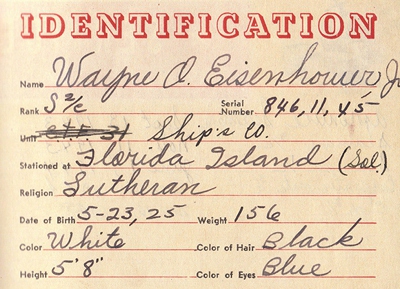 IDENTIFICATION
Name Wayne O. Eisenhower Jr
Rank S 2/c Serial Number 846,11,45
Unit C.U.B. 31 Ship's Co.
Stationed at Florida Island (Sol.)
Religion Lutheran
Date of Birth 5-23, 25 Weight 156
Color White Color of Hair Black
Height 5'8" Color of Eyes Blue